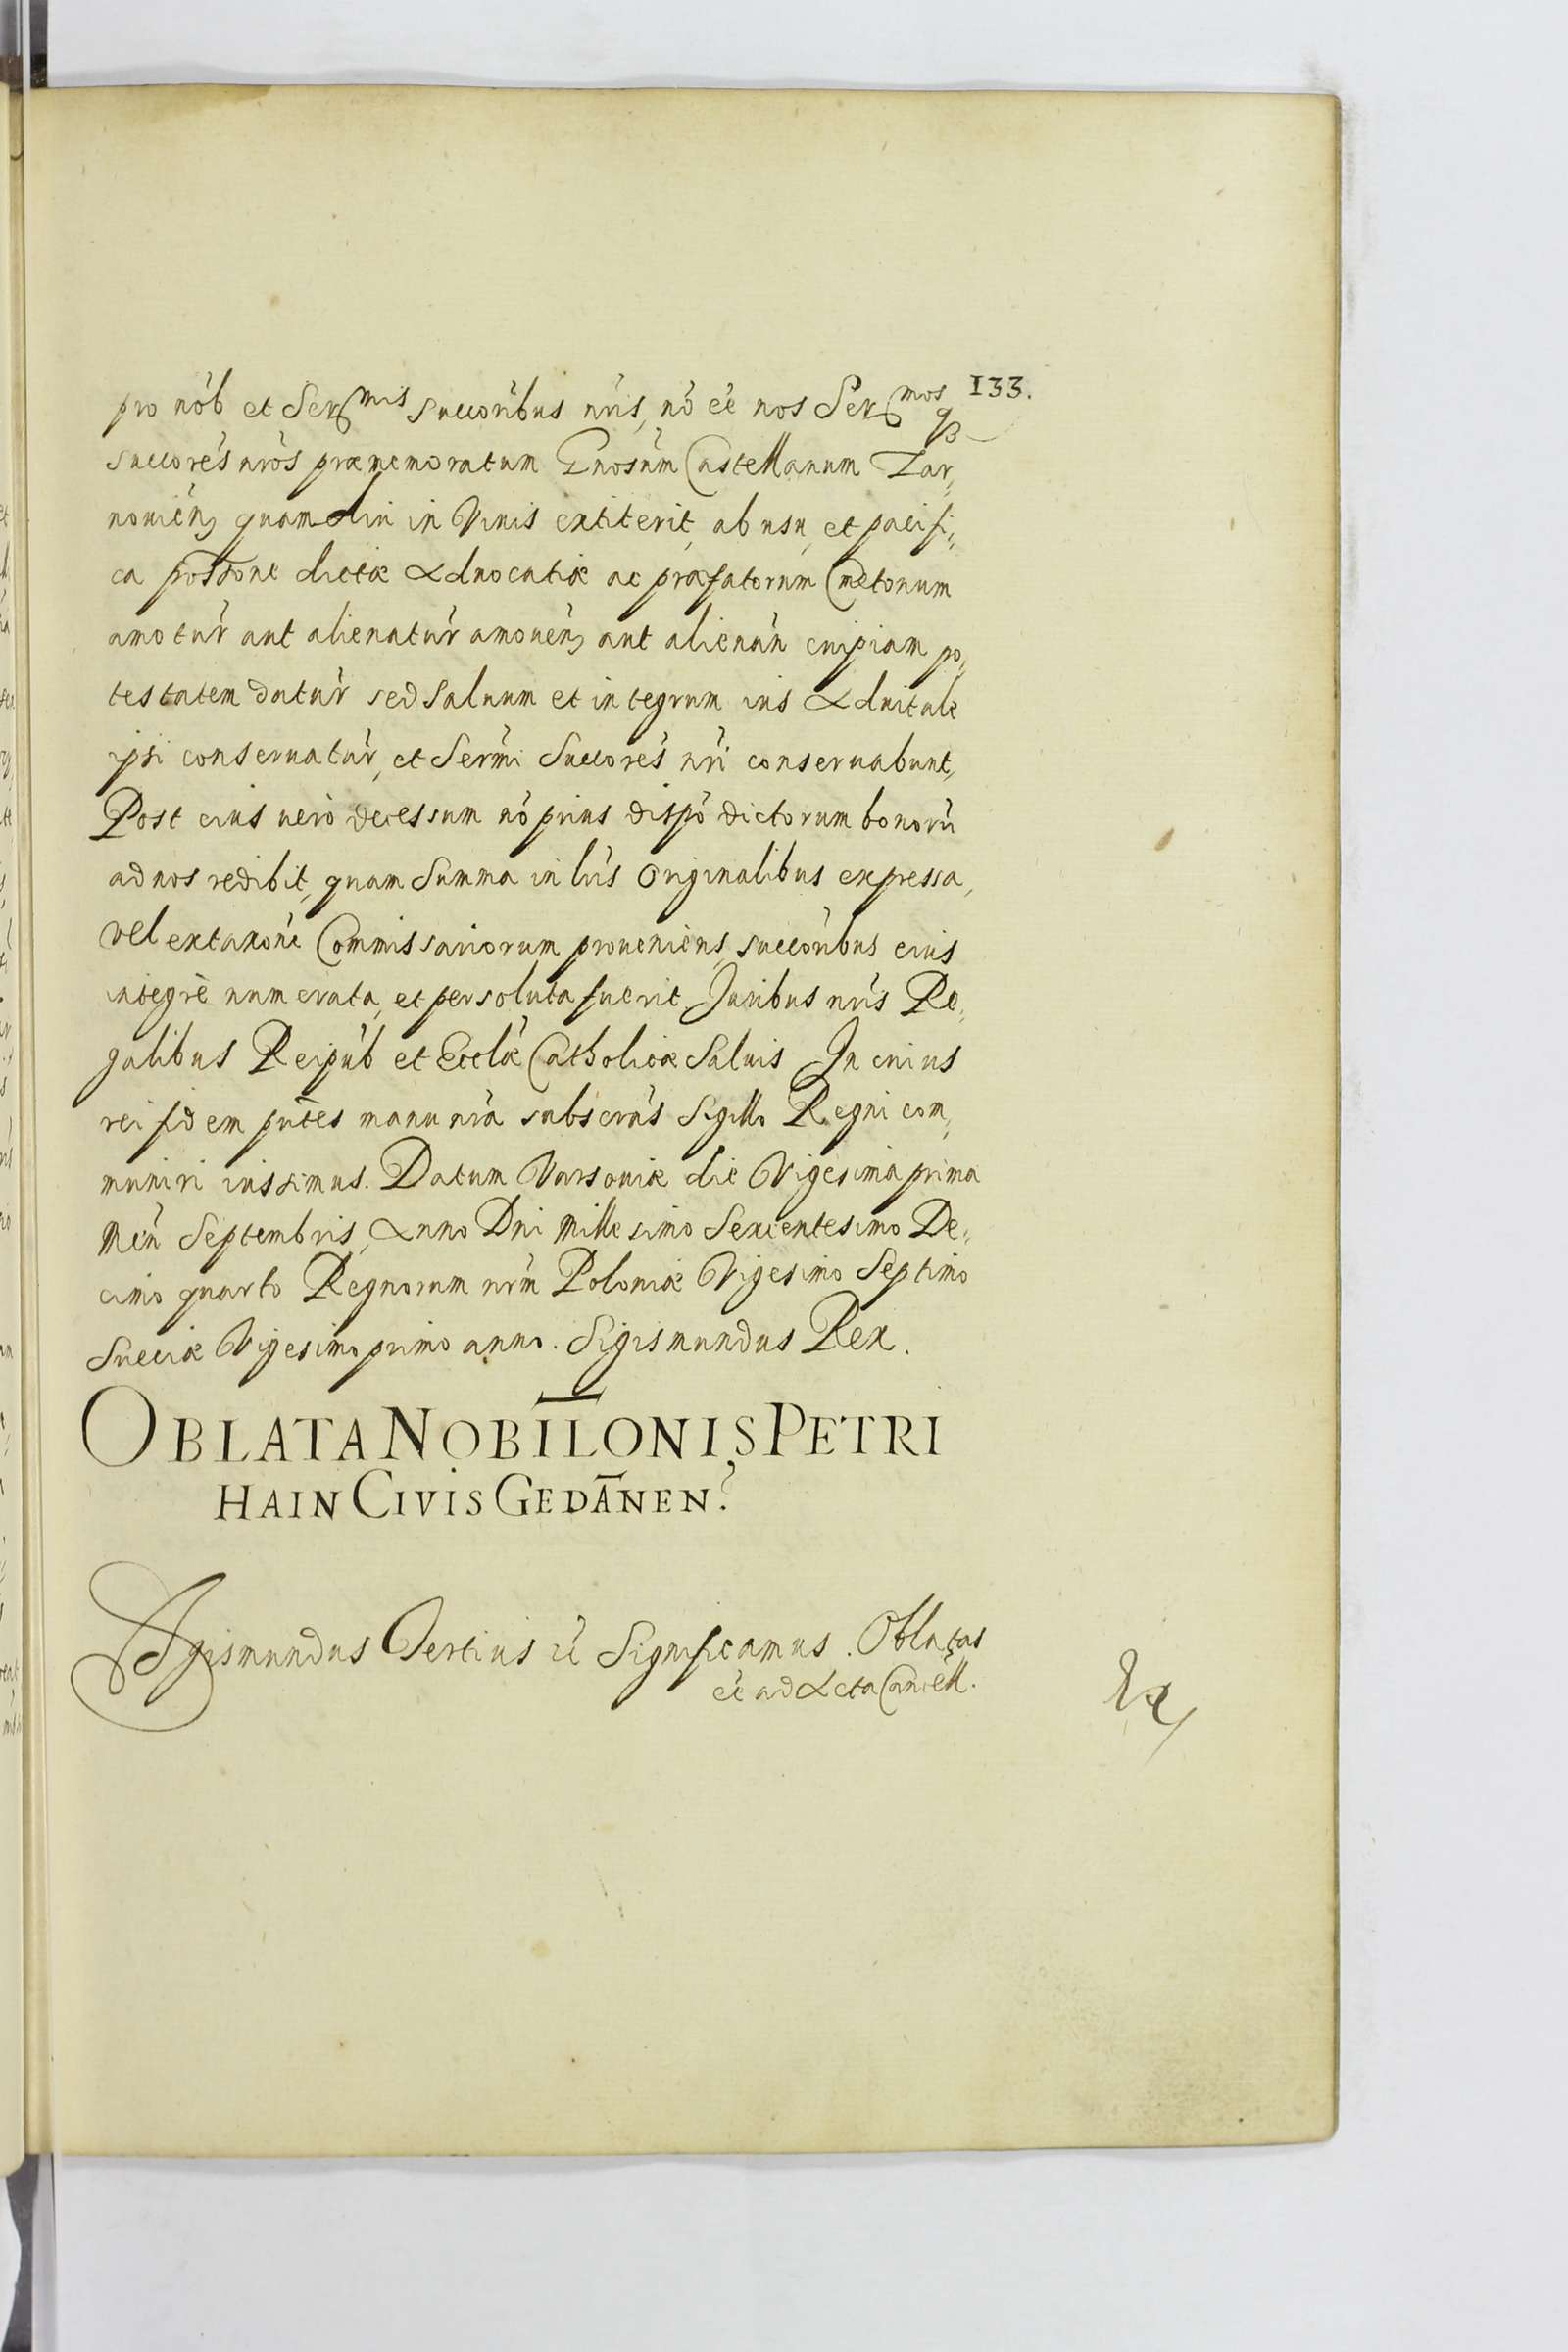 133.
pro nob et Ser mis succoribus nris, no ee nos Ser mos q3
succores nros praememoratum Gnosum Castellanum Zar,,
novien, quamdiu in Vivis extiterit, ab usu, et pacifi,,
ca possone dictae Advocatiae ac praefatorum Cmetonum
amotur aut alienatur amoven, aut alienan cuipiam po,,
testatem datur sed salvum et integrum ius Advitale
ipsi conservatur, et Sermi Succores nri conservabunt,
Post eius vero decessum no prius dispo dictorum bonoru
ad nos redibit, quam Summa in lris Originalibus expressa,
vel ex taxone Commissariorum proveniens, succoribus eius
integre numerata, et persoluta fuerit, Juribus nris Re,,
galibus Reipub et Ecclae Catholicae Salvis In cuius
rei fidem pntes manu nra subscrus Sigillo Regni com,,
muniri iussimus. Datum Varsoviae die Vigesima prima
Men Septembris, Anno Dni Millesimo Sexcentesimo De,,
cimo quarto Regnorum nrm Poloniae Vigesimo Septimo
Sueciae Vigesimo primo anno. Sigismundus Rex.
OBLATA NOBILONIS PETRI
HAIN CIVIS GEDANEN.
Sigismundus Tertius &c Significamus. Oblatas
ee ad Acta Cancell.